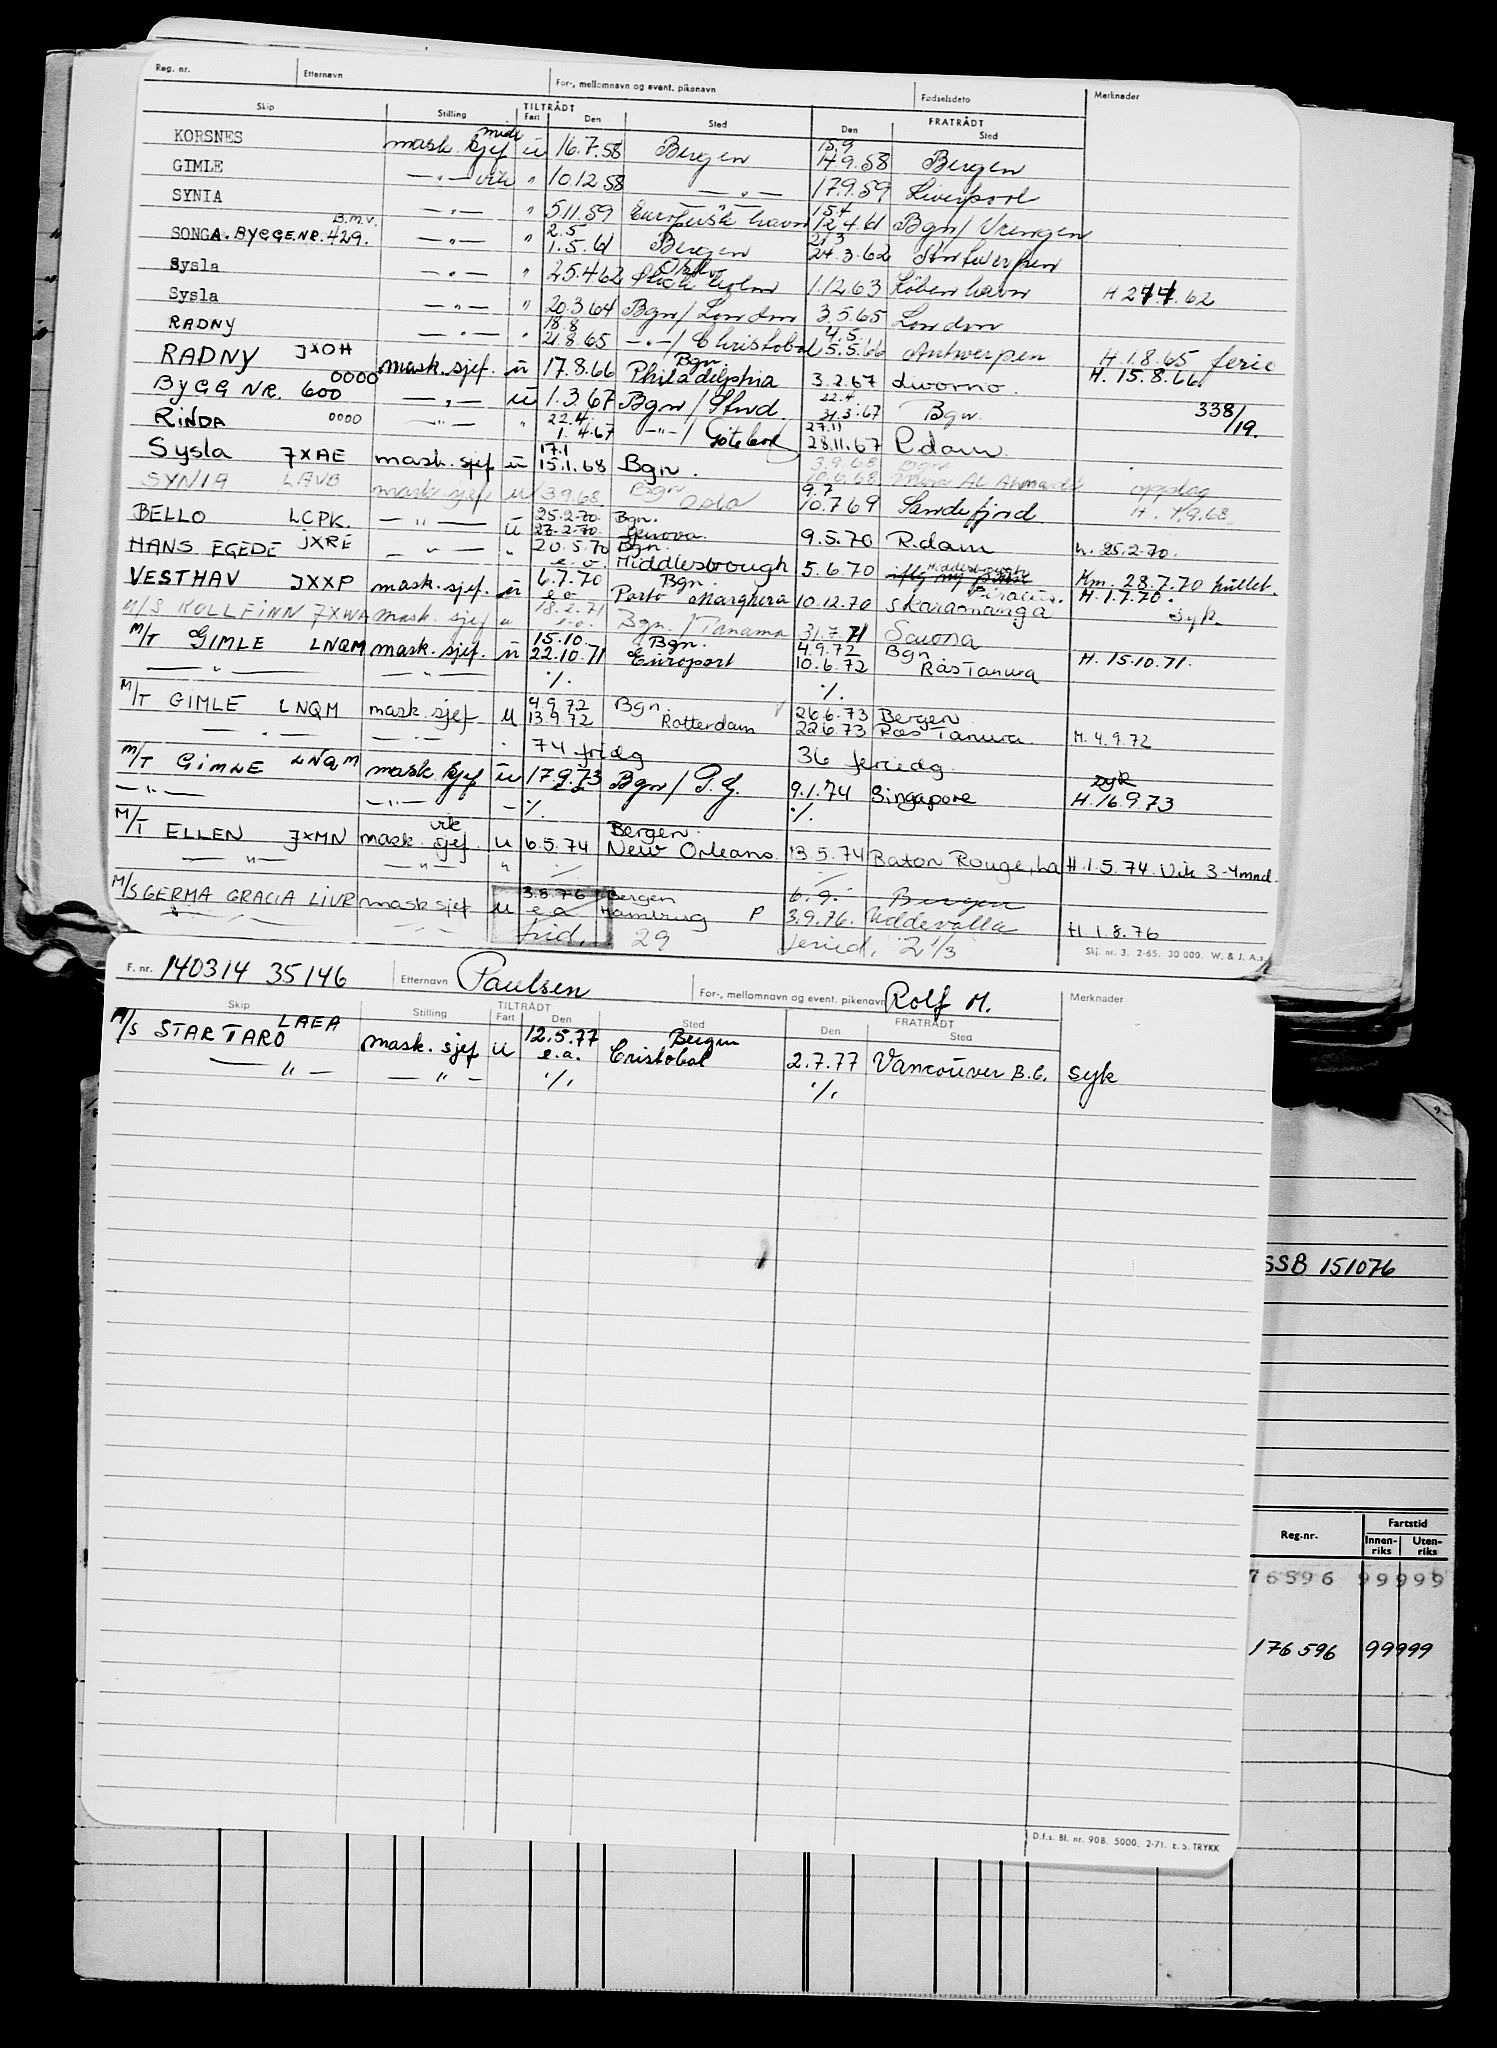 Reg. nr. Etternavn For-, mellomnavn og event. pikenavn Fødselsdato Merknader
TILTRÅDT FRATRÅDT
Skip Stilling Fart Den Sted Den Sted
midl 15.9
KORSNES mask. sjef u 16.7.58 Bergen 14.9.58 Bergen
GIMLE —"— vik " 10.12.58 —"— 17.9.59 Liverpool
15.4
SYNIA —"— " 5.11.59 Europeisk havn 12.4.61 Bgn/ Vrengen
B.m.v. 2.5 21.3
SONGA. BYGGENR. 429. —"— " 1.5.61 Bergen 24.3.62 Antwerpen
Oslo
Sysla —"— " 25.4.62 Stockholm 1.12.63 København H 27.7.62
Sysla —"— " 20.3.64 Bgn/ London 3.5.65 London
18.8 4.5
RADNY —"— " 21.8.65 —"—/ Christobal 5.5.66 Antwerpen H. 1.8.65 ferie
Bgn.
RADNY JXOH mask. sjef. u 17.8.66 Philadelphia 3.2.67 Livorno. H. 15.8.66.
0000 22.4
BYGG NR. 600 —"— u 1.3.67 Bgn/ Stord. 21.3.67 Bgn. 338/19.
22.4. 27.11
RINDA 0000 —"— " 1.4.67 —"—/ Göteborg 28.11.67 R.dam.
17.1 3.9.68 Bgn
Sysla JXAE mask. sjef u 15.1.68 Bgn. 10.6.68 Mina Al Ahmadi
9.7 oppdag
SYNIA LAVB mask. sjef u 3.9.68 Bgn Oslo 10.7.69 Sandefjord H. 1.9.68
25.2.70. Bgn.
BELLO LCPK. —"— u 27.2.70. Genova. 9.5.70 R.dam h. 25.2.70.
20.5.70 Bgn. Middlesbrough
HANS EGEDE JXRE —"— " e.o. Middlesbrough 5.6.70 Km. 28.7.70 kullet.
6.7.70 Bgn. Piraeus. H. 1.7.70.
VESTHAV JXXP mask. sjef. u e o Porto Marghera 10.12.70 Skaramanga Syk
18.2.71
M/S KOLLFINN JXWA mask. sjef u e.o. Bgn. / Panama 31.7.71 Savona
15.10. Bgn. 4.9.72 Bgn
M/T GIMLE LNQM mask. sjef. u 22.10.71 Europort 10.6.72 Ras Tanura H. 15.10.71.
—"— —"— ./. ./.
4.9.72 Bgn. 26.6.73 Bergen
M/T GIMLE LNQM mask. sjef u 13.9.72 Rotterdam 22.6.73 Ras Tanura. H. 4.9.72
—"— —"— " 74 fridg 36 feriedg
syk
M/T GIMLE LNQM mask. sjef u 17.9.73 Bgn/ P.G. 9.1.74 Singapore H. 16.9.73
—"— —"— — ./. ./.
vik Bergen.
M/T ELLEN JXMN mask. sjef. u 6.5.74 New Orleans. 13.5.74 Baton Rouge, La H. 1.5.74 Vik 3-4 mnd.
—"— —"— "
3.8.76 Bergen 6.9. Bergen
M/S GERMA GRACIA LIVR mask sjef u e a Hamburg P 3.9.76. Uddevalla H 1.8.76
frid. 29 feried. 2 1/3
Skj. nr. 3. 2-65. 30 000. W. & J. A.s.
F. nr. 140314 35146 Etternavn Paulsen For-, mellomnavn og event. pikenavn Rolf M. Merknader
TILTRÅDT FRATRÅDT
Skip Stilling Fart Den Sted Den Sted
LAEA 12.5.77 Bergen
M/S STAR TARO mask. sjef u e.a. Cristobal 2.7.77 Vancouver B.C. syk
—"— —"— ./. ./.
SSB 151076
Reg.nr. Fartstid
Innen-riks Uten-riks
76596 99999
176596 99999
D.f.s. Bl. nr. 908. 5000. 2-71. E. S. TRYKK